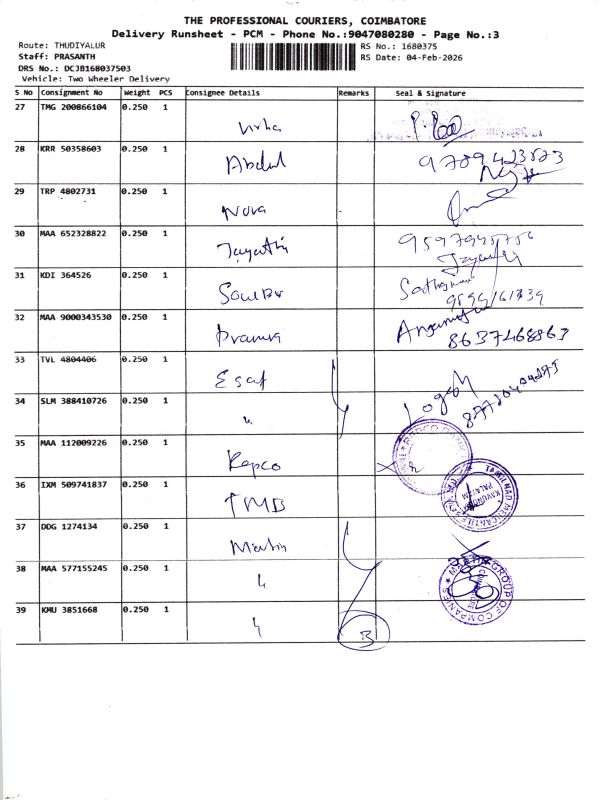 THE PROFESSIONAL COURIERS, COIMBATORE
Delivery Runsheet - PCM - Phone No.:9047080280 - Page No.:3
Route: THUDIYALUR
RS No.: 1680375
Staff: PRASANTH
RS Date: 04-Feb-2026
DRS No.: DCJB168037503
Vehicle: Two Wheeler Delivery
S No Consignment No Weight PCS Consignee Details Remarks Seal & Signature
27 TMG 200866104 0.250 1
28 KRR 50358603 0.250 1
Abdul
29 TRP 4802731 0.250 1
Nova
30 MAA 652328822 0.250 1
Jayathi
31 KDI 364526 0.250 1
32 MAA 9000343530 0.250 1
8637468863
33 TVL 4804406 0.250 1
Esaf
34 SLM 388410726 0.250 1
"
35 MAA 112009226 0.250 1
Repco
36 IXM 509741837 0.250 1
TMB
TAMILNAD MERCANTILE
37 DDG 1274134 0.250 1
Martin
38 MAA 577155245 0.250 1
"
MARTIN GROUP OF COMPANIES
39 KMU 3851668 0.250 1
"
3